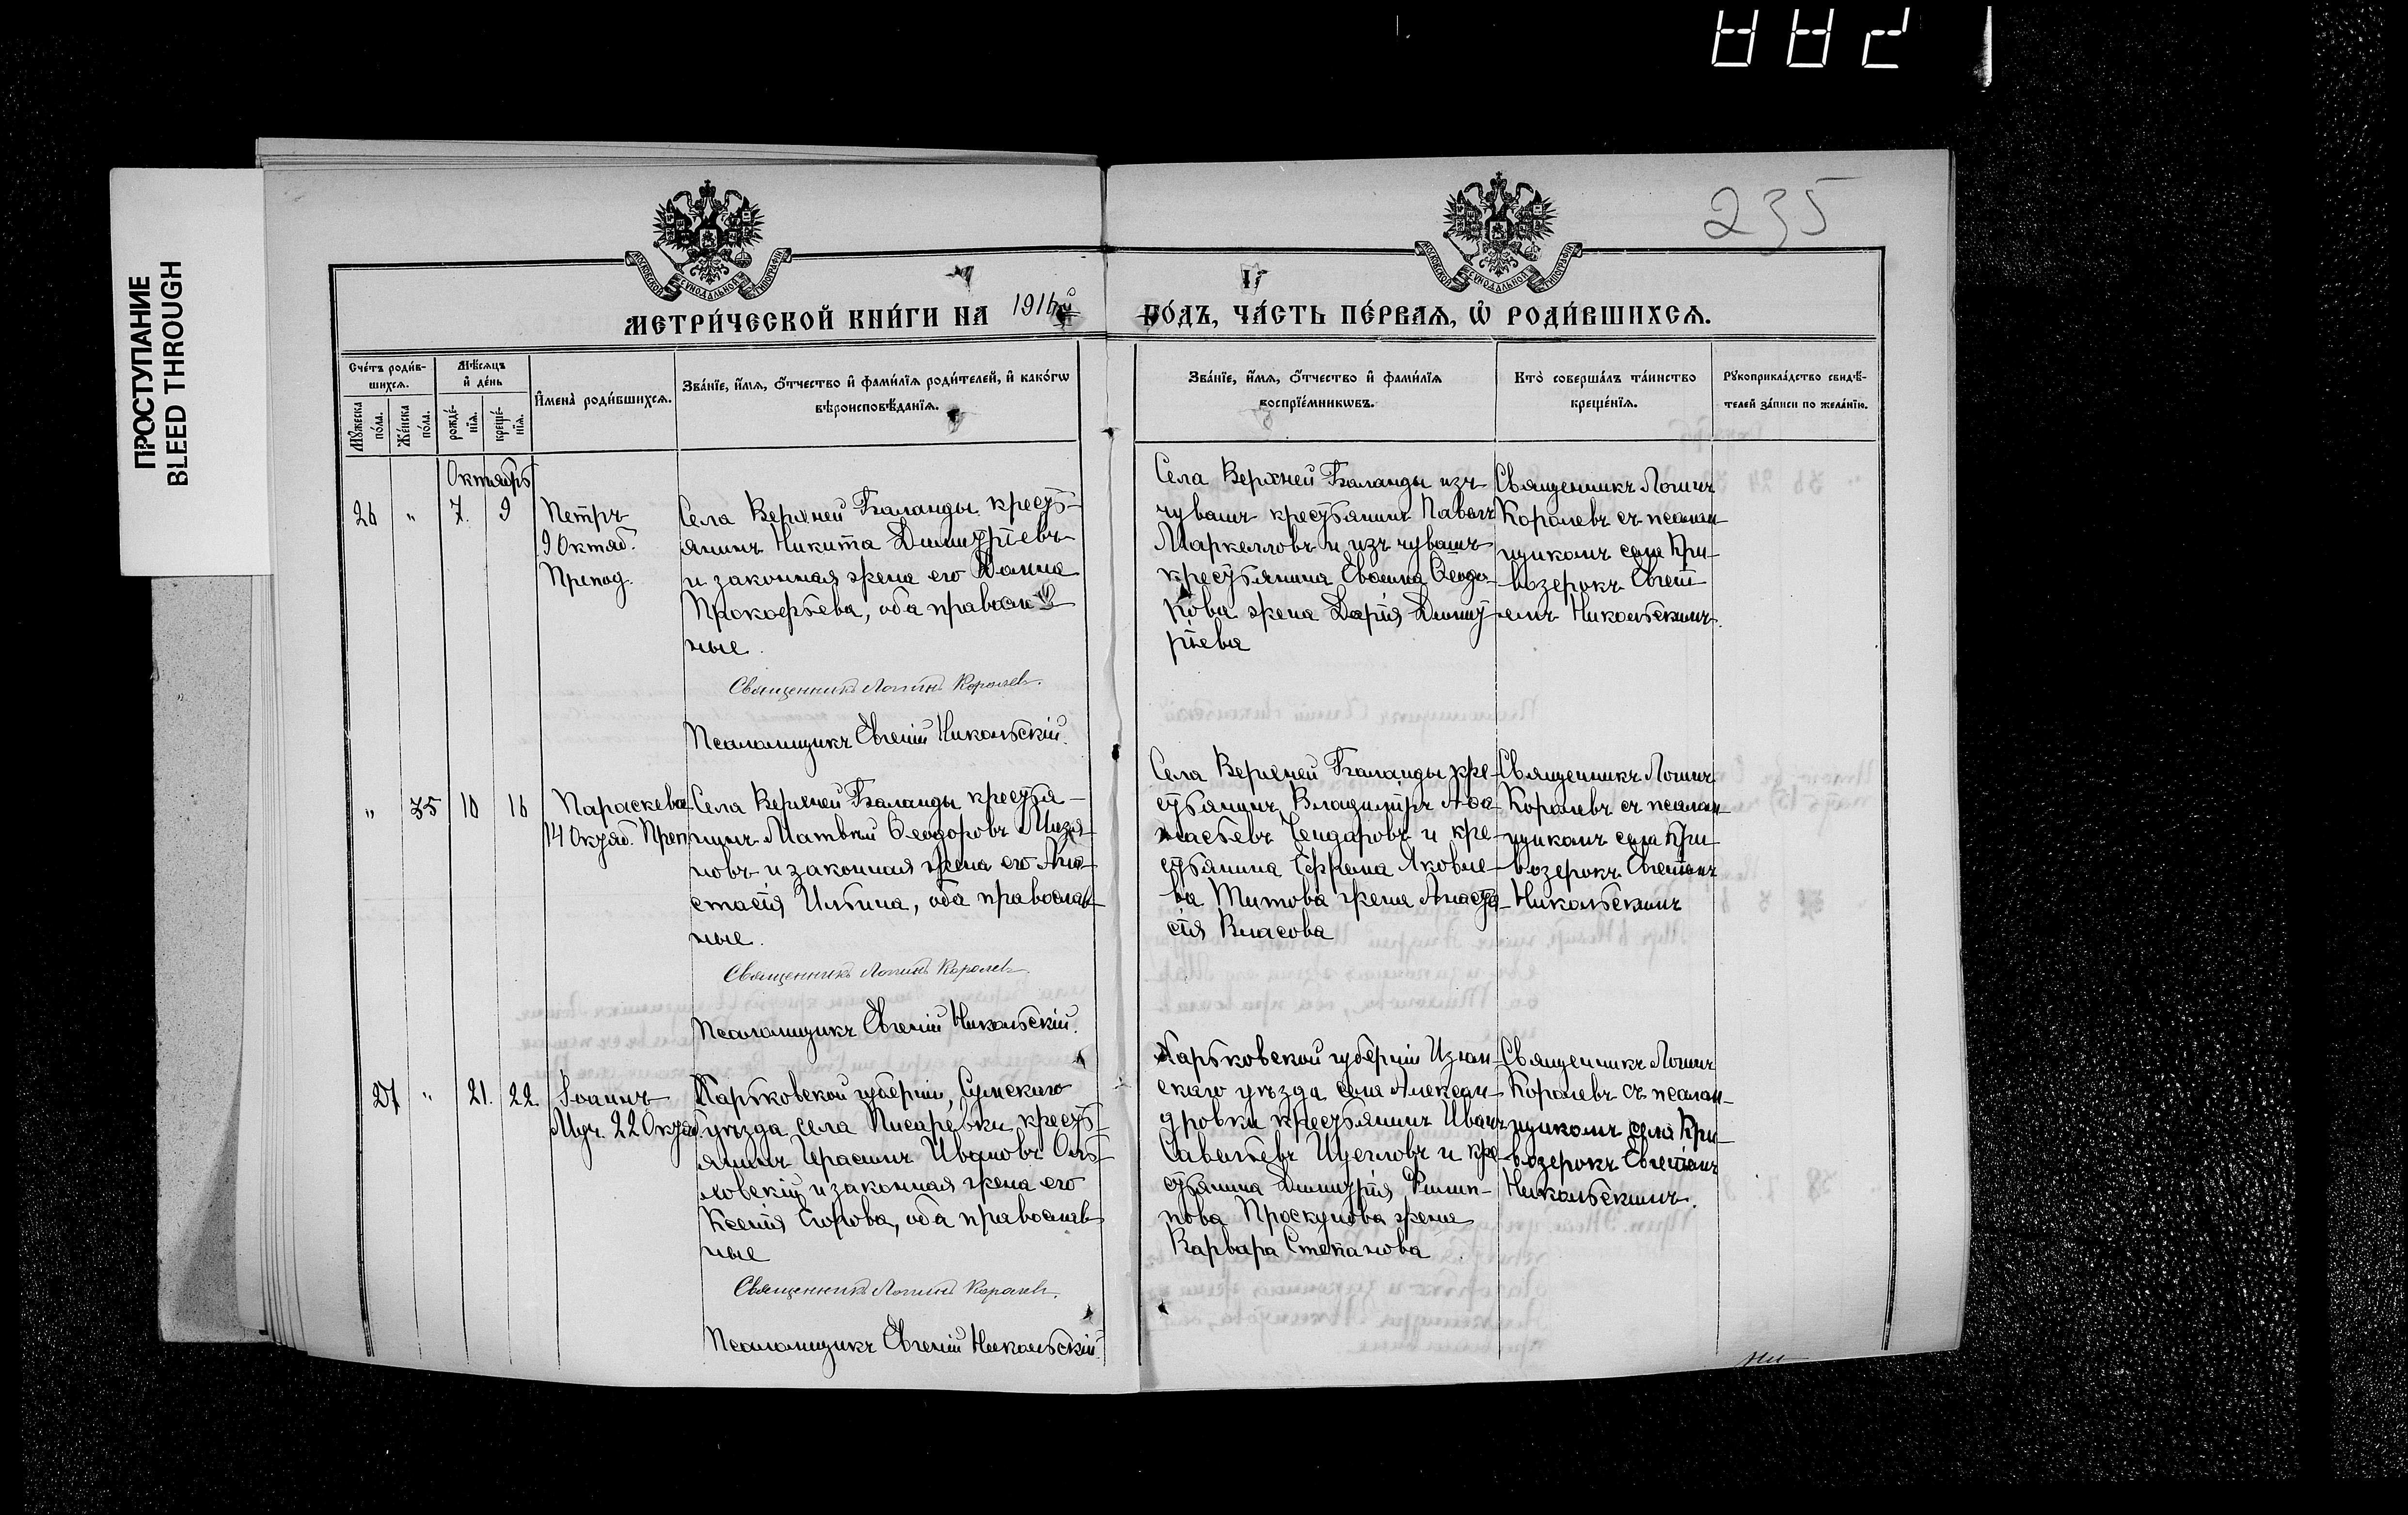 ПРОСТУПАНИЕ
BLEED THROUGH
235
МОСКОВСКОЙ СѴНОДАЛЬНОЙ ТИПОГРАФІИ
МОСКОВСКОЙ СѴНОДАЛЬНОЙ ТИПОГРАФІИ
МЕТРИ́ЧЕСКОЙ КНИ́ГИ НА 1916й ГО́ДЪ, ЧА́СТЬ ПЕ́РВАѦ, Ѡ҆ РОДИ́ВШИХСѦ.
Сче́тъ роди́в-
шихсѧ.
Мꙋ́жеска по́ла.
Же́нска по́ла.
Мѣ́сѧцъ
и҆ де́нь
рожде́-
нїѧ.
креще́-
нїѧ.
И҆мена̀ роди́вшихсѧ.
Зва́нїе, и҆́мѧ, ѻ҆́тчество и҆ фами́лїѧ роди́телей, и҆ како́гѡ
вѣроисповѣ́данїѧ.
Зва́нїе, и҆́мѧ, ѻ҆́тчество и҆ фами́лїѧ
воспрїе́мникѡвъ.
Кто̀ соверша́лъ та́инство
креще́нїѧ.
Рꙋкоприкла́дство свидѣ́-
телей за́писи по жела́нїю.
Октябрь
26 " 7. 9
Петръ
9 Октяб.
Препод.
Села Верхней Баланды крестъ-
янинъ Никита Димитріевъ
и законная жена его Іоанна
Прокофьева, оба православ-
ные.
Священникъ Логинъ Королев.
Псаломщикъ Евгеній Никольскій.
Села Верхней Баланды изъ
чувашъ крестьянинъ Павелъ
Маркелловъ и изъ чувашъ
крестьянина Евсина Ѳеодо-
рова жена Дарія Димит-
ріева
Священникъ Логинъ
Королевъ съ псалом-
щикомъ села Кри-
возерокъ Евгені-
емъ Никольскимъ.
" 35 10 16
Параскева
14 Октяб. Преп.
Села Верхней Баланды крестья-
нинъ Матвѣй Ѳеодоровъ Мизи-
новъ и законная жена его Ана-
стасія Ильина, оба православ-
ные.
Священникъ Логинъ Королев.
Псаломщикъ Евгеній Никольскій.
Села Верхней Баланды кре-
стьянинъ Владиміръ Аѳа-
насьевъ Чендаровъ и кре-
стьянина Ефрема Яковле-
ва Титова жена Анаста-
сія Власова
Священникъ Логинъ
Королевъ съ псалом-
щикомъ села Кри-
возерокъ Евгеніемъ
Никольскимъ
27 " 21. 22.
Іоаннъ
Муч. 22 Октяб.
Харьковской губерніи, Сумскаго
уѣзда села Писаревки крестъ-
янинъ Герасимъ Ивановъ Оль-
ховскій и законная жена его
Ксенія Егорова, оба православ-
ные
Священникъ Логинъ Королев.
Псаломщикъ Евгеній Никольскій.
Харьковской губерніи Изюм-
скаго уѣзда села Алексан-
дровки крестьянинъ Иванъ
Савельевъ Щегловъ и кре-
стьянина Димитрія Филип-
пова Проскунова жена
Варвара Степанова
Священникъ Логинъ
Королевъ съ псалом-
щикомъ села Кри-
возерокъ Евгеніемъ
Никольскимъ.